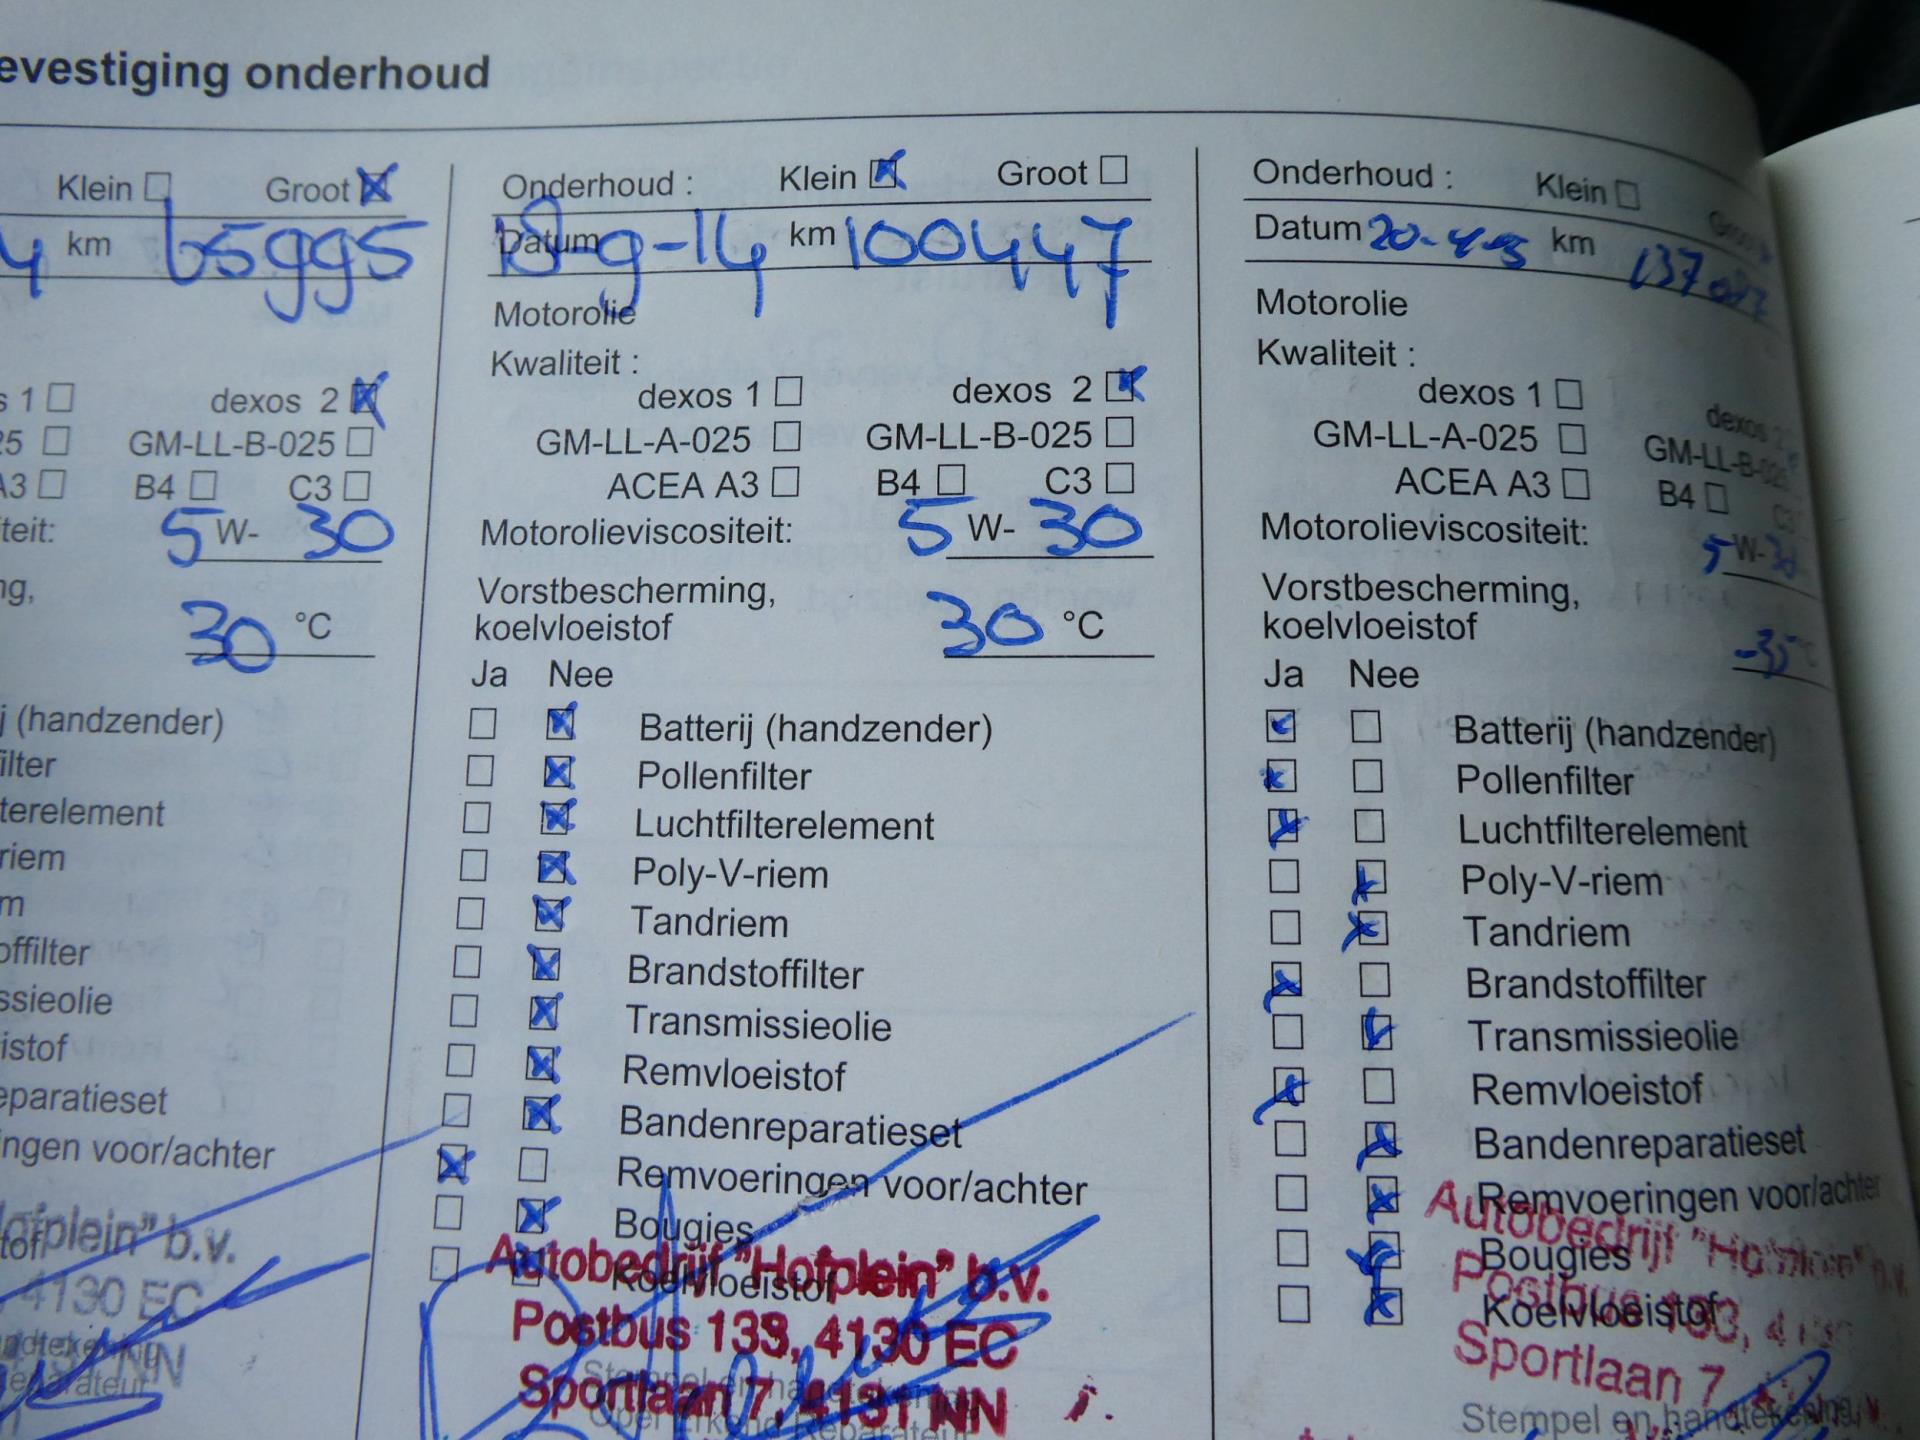 evestiging onderhoud
Klein Groot
4 km 65995
s 1 dexos 2
25 GM-LL-B-025
A3 B4 C3
teit: 5 W- 30
ng,
30 °C
j (handzender)
filter
terelement
riem
m
offilter
ssieolie
istof
eparatieset
ingen voor/achter
Hofplein" b.v.
tof
, 4130 EC
NN
Onderhoud : Klein Groot
Datum 18-9-14 km 100447
Motorolie
Kwaliteit :
dexos 1 dexos 2
GM-LL-A-025 GM-LL-B-025
ACEA A3 B4 C3
Motorolieviscositeit: 5 W- 30
Vorstbescherming,
koelvloeistof 30 °C
Ja Nee
Batterij (handzender)
Pollenfilter
Luchtfilterelement
Poly-V-riem
Tandriem
Brandstoffilter
Transmissieolie
Remvloeistof
Bandenreparatieset
Remvoeringen voor/achter
Bougies
Koelvloeistof
Autobedrijf "Hofplein" b.v.
Postbus 133, 4130 EC
Sportlaan 7, 4131 NN
Stempel en handtekening
Opel Erkend Reparateur
Onderhoud : Klein Groot
Datum 20-4-15 km
Motorolie
Kwaliteit :
dexos 1 dexos 2
GM-LL-A-025 GM-LL-B-025
ACEA A3 B4 C3
Motorolieviscositeit: 5 W-30
Vorstbescherming,
koelvloeistof °C
Ja Nee
Batterij (handzender)
Pollenfilter
Luchtfilterelement
Poly-V-riem
Tandriem
Brandstoffilter
Transmissieolie
Remvloeistof
Bandenreparatieset
Remvoeringen voor/achter
Bougies
Koelvloeistof
Autobedrijf "Hofplein" b.v.
Postbus 133, 4130
Sportlaan 7,
Stempel en handtekening